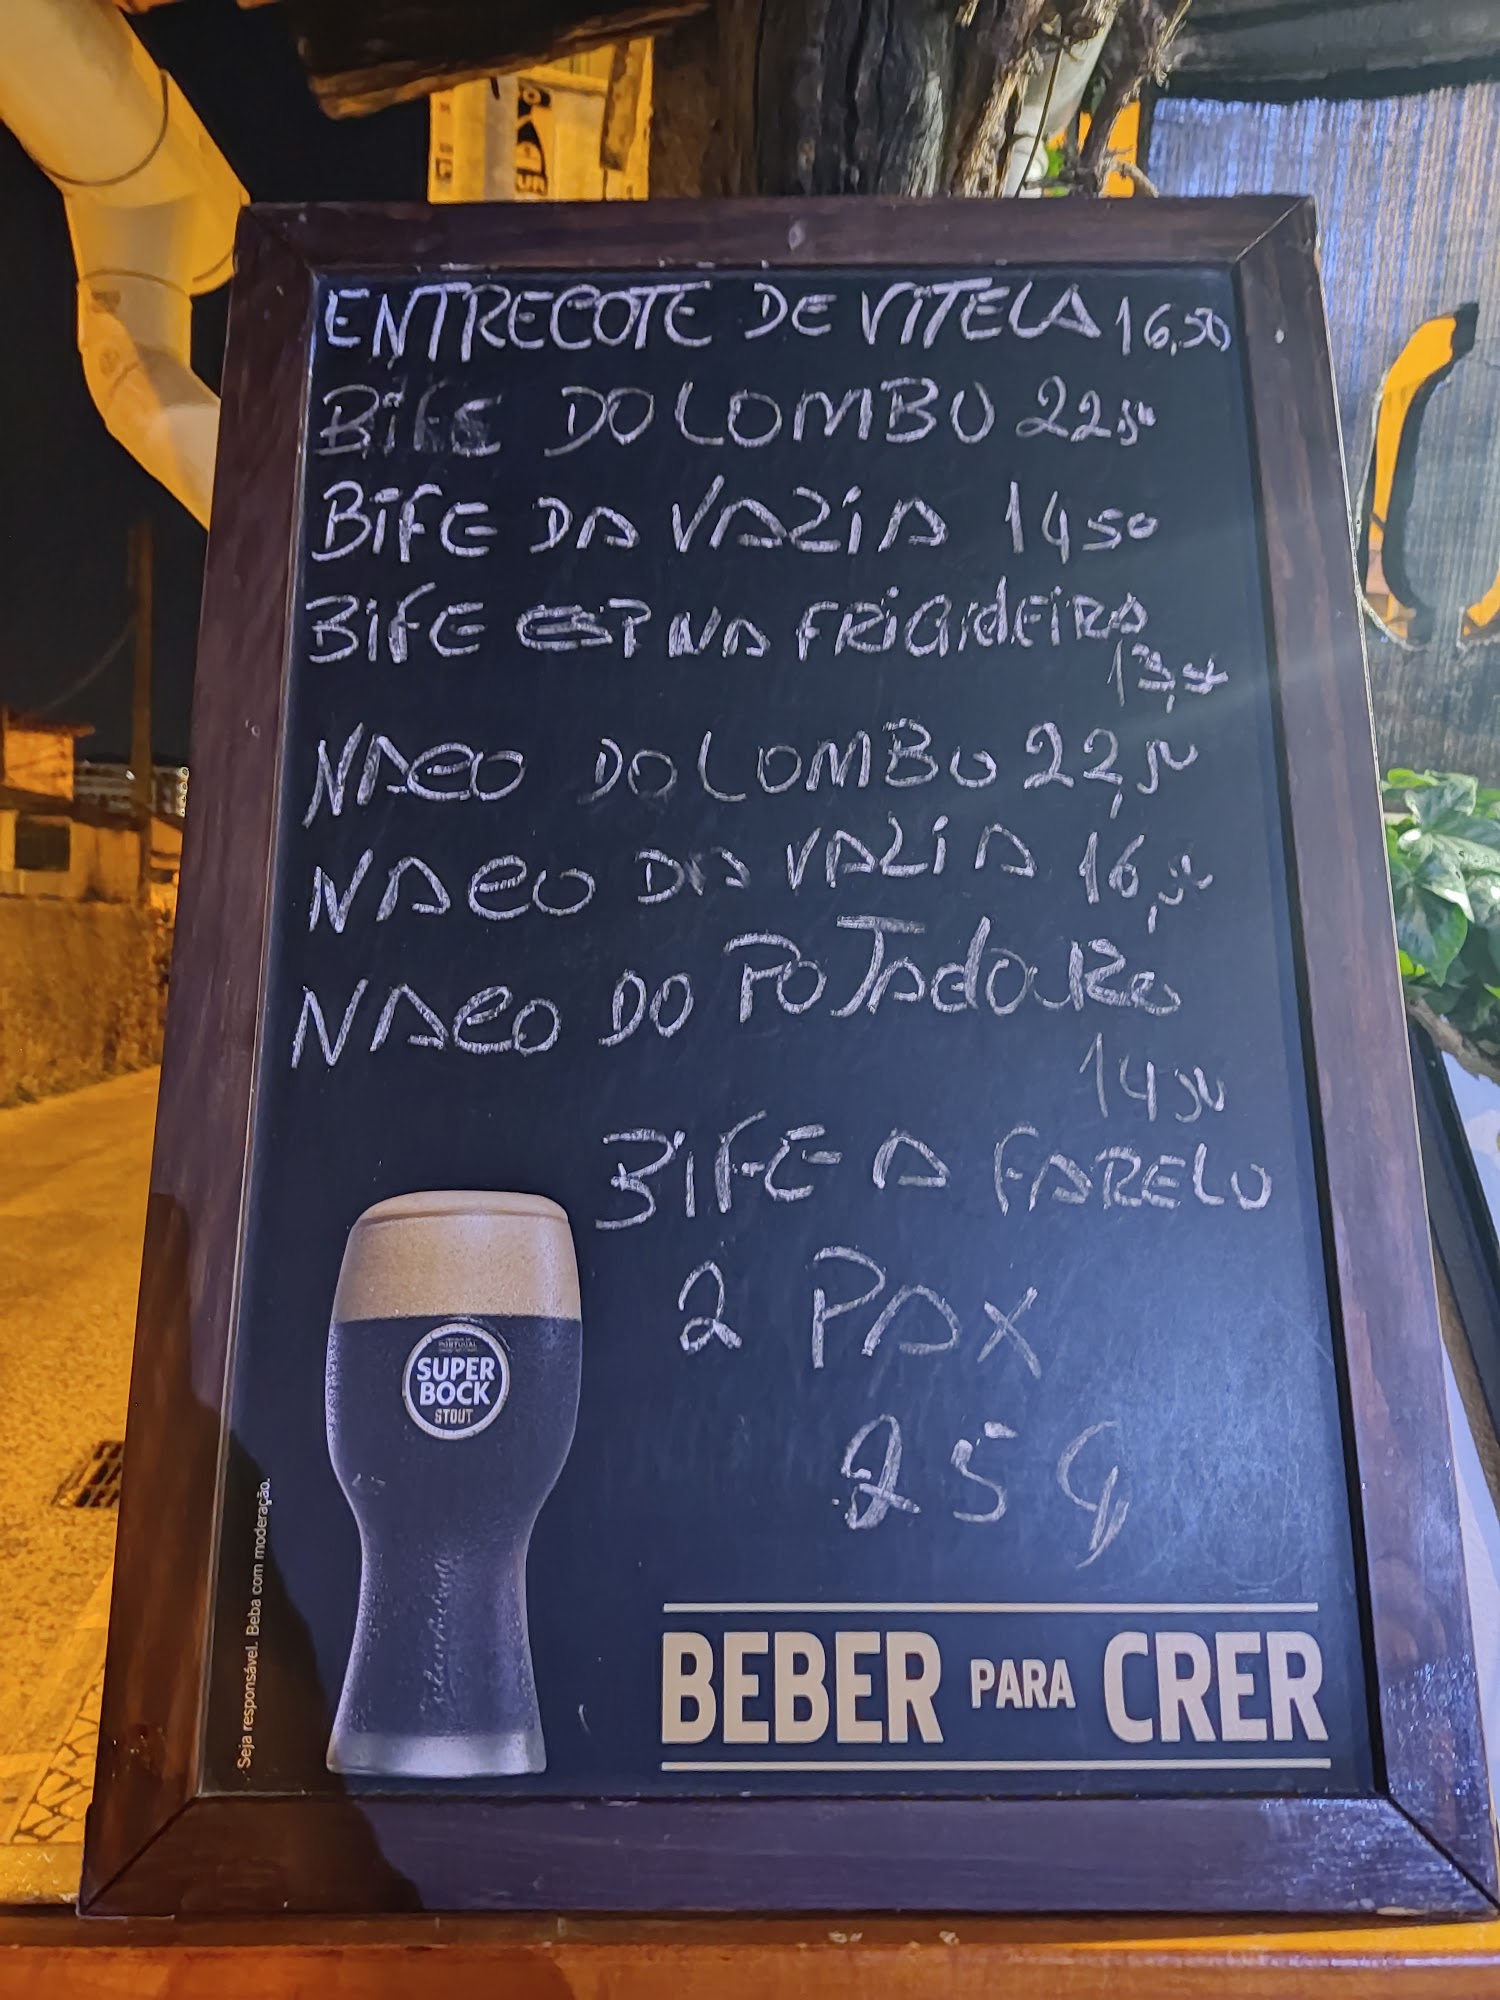 ENTRECOTE DE VITELA 16,50
BIFE DO LOMBO 22,50
BIFE DA VAZIA 14 50
BIFE ESP NA FRIGIDEIRA
NACO DO LOMBO 22,50
NACO DA VAZIA 16,50
NACO DO POJADOURO
14 50
BIFE A FARELO
2 PAX
25
SUPER
BOCK
STOUT
BEBER PARA CRER
Seja responsável. Beba com moderação.